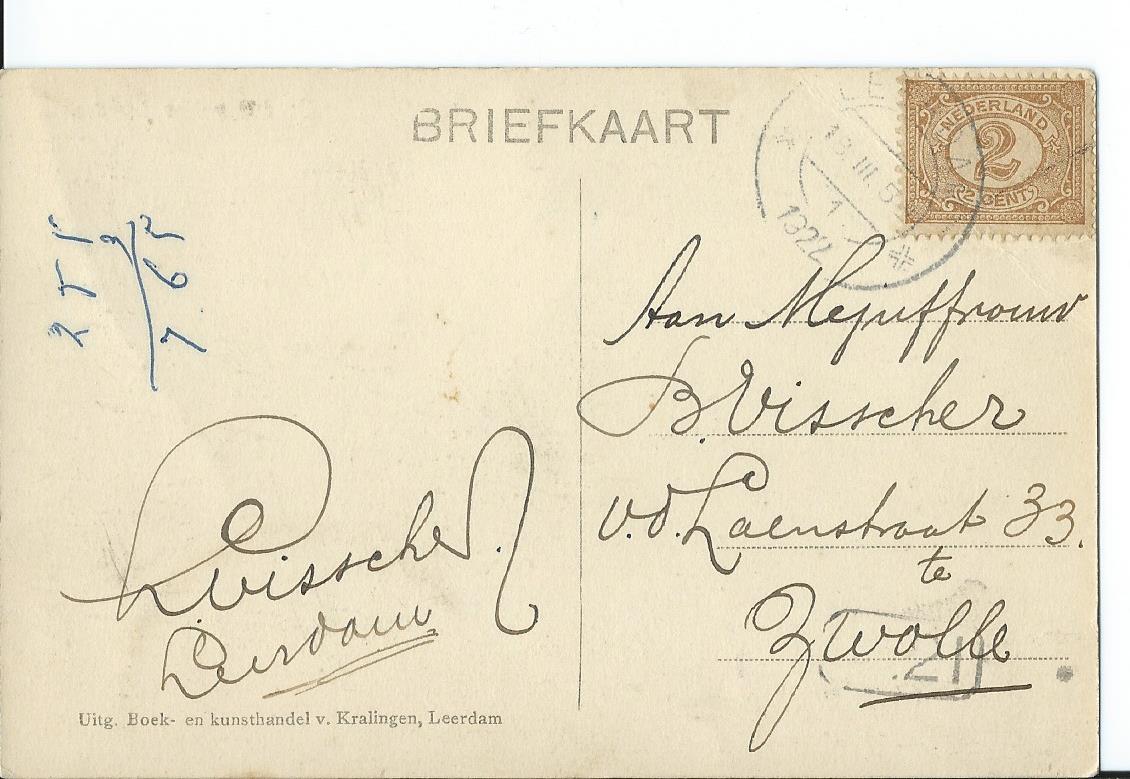 BRIEFKAART
NEDERLAND
2
2 CENT
1922
Aan Mejuffrouw
B. Visscher
v.d. Laenstraat 33.
te
Zwolle
Visscher.
Leerdam
Uitg. Boek- en kunsthandel v. Kralingen, Leerdam